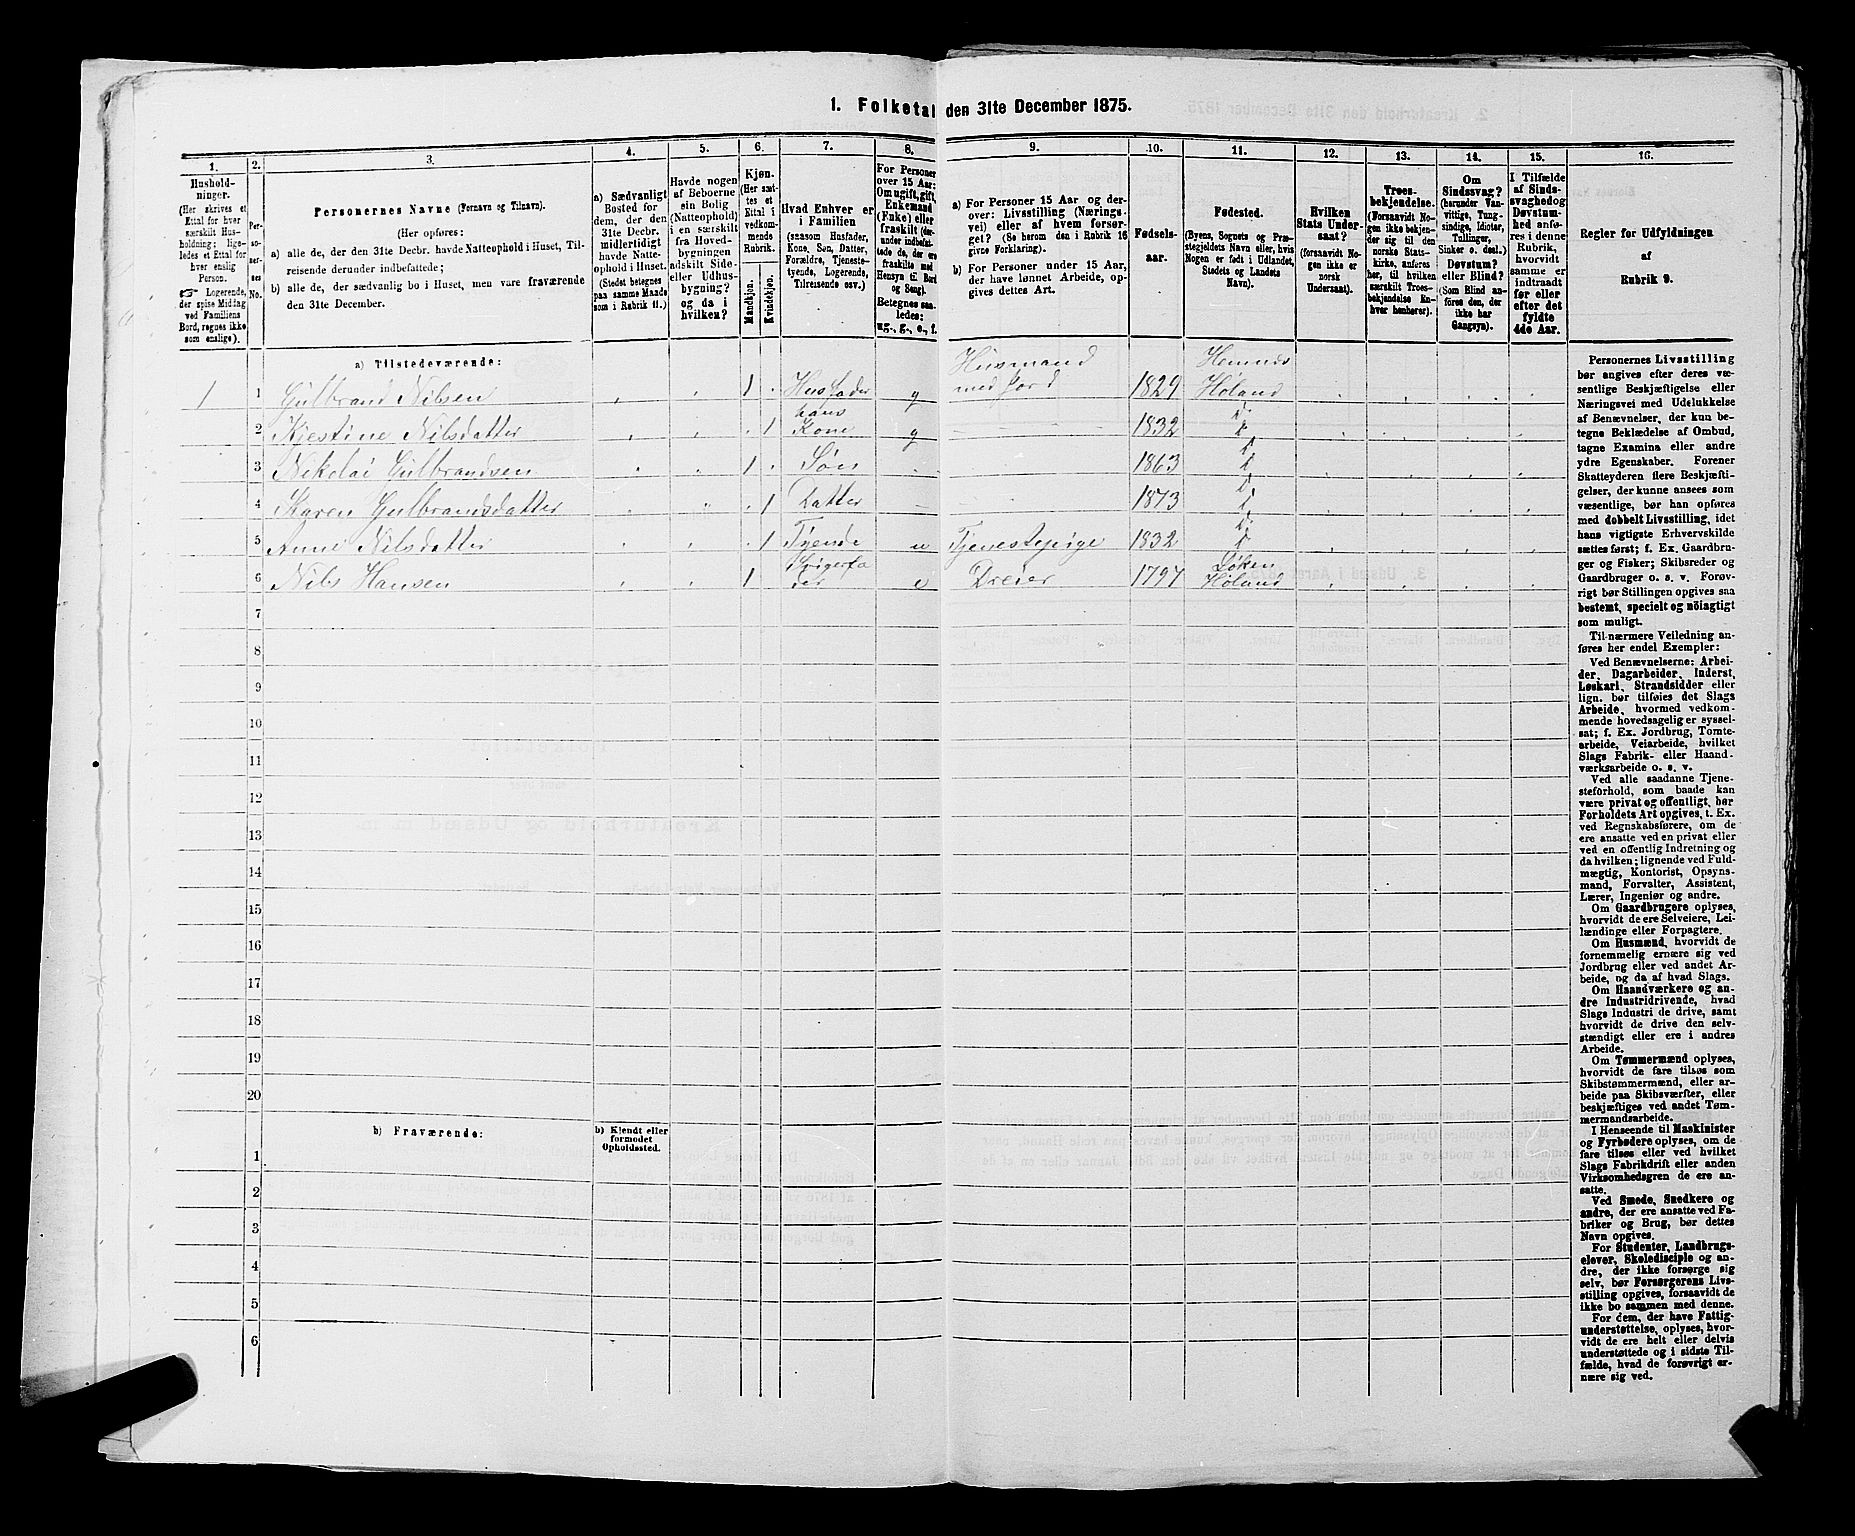 1. Folketal den 31te December 1875.
1.
Hushold-
ninger.
(Her skrives et
Ettal for hver
særskilt Hus-
holdning; lige-
ledes et Ettal for
hver enslig
Person.
☞ Logerende,
der spise Middag
ved Familiens
Bord, regnes ikke
som enslige).
2.
Per-
so-
ner-
nes
No.
3.
Personernes Navne (Fornavn og Tilnavn).
(Her opføres:
a) alle de, der den 31te Decbr. havde Natteophold i Huset, Til-
reisende derunder indbefattede;
b) alle de, der sædvanlig bo i Huset, men vare fraværende
den 31te December.
4.
a) Sædvanligt
Bosted for
dem, der den
31te Decbr.
midlertidigt
havde Natte-
ophold i Huset.
(Stedet betegnes
paa samme Maade
som i Rubrik 11.)
5.
Havde nogen
af Beboerne
ein Bolig
(Natteophold)
i en særskilt
fra Hoved-
bygningen
adskilt Side-
eller Udhus-
bygning?
og da i
hvilken?
6.
Kjøn.
(Her sæt-
tes et
Ettal i
vedkom-
mende
Rubrik.
Mandkjøn.
Kvindekjøn.
7.
Hvad Enhver er
i Familien
(saasom Husfader,
Kone, Søn, Datter,
Forældre, Tjeneste-
tyende, Logerende,
Tilreisende osv.)
8.
For Personer
over 15 Aar:
Om ugift, gift,
Enkemand
(Enke) eller
fraskilt
Betegnes saa-
ledes:
ug., g., e., f.
9.
a) For Personer 15 Aar og der-
over: Livsstilling (Nærings-
vei) eller af hvem forsør-
get? (Se herom den i Rubrik 16
givne Forklaring).
b) For Personer under 15 Aar,
der have lønnet Arbeide, op-
gives dettes Art.
10.
Fødsels-
aar.
11.
Fødested.
(Byens, Sognets og Præ-
stegjeldets Navn eller, hvis
Nogen er født i Udlandet,
Stedets og Landets
Navn).
12.
Hvilken
Stats Under-
saat?
(forsaavidt No-
gen ikke er
norsk
Undersaat).
13.
Troes-
bekjendelse.
(Forsaavidt No-
gen ikke bekjen-
der sig til den
norske Stats-
kirke, anføres
her, til hvilken
særskilt Troes-
bekjendelse En-
hver henhører).
14.
Om
Sindssvag?
(herunder Van-
vittige, Tung-
sindige, Idioter,
Tullinger,
Sinker o. desl.)
Døvstum?
eller Blind?
(Som Blind an-
føres den, der
ikke har
Gangsyn).
15.
I Tilfælde
af Sinds-
svaghed og
Døvstum-
hed anfø-
res i denne
Rubrik,
hvorvidt
samme er
indtraadt
før eller
efter det
fyldte
4de Aar.
16.
Regler for Udfyldningen
af
Rubrik 9.
a) Tilstedeværende:
1 1 Gulbrand Nilsen 1 Husfader g Husmand med Jord 1829 Hemnes Høland
2 Kjestine Nilsdatter 1 hans Kone g 1832
3 Nikolai Gulbrandsen 1 Søn 1863
4 Karen Gulbrandsdatter 1 Datter 1873
5 Anne Nilsdatter 1 Tyende u Tjenestepige 1832
6 Nils Hansen 1 e Dreier 1797 Løken Høland
7
8
9
10
11
12
13
14
15
16
17
18
19
20
b) Fraværende:
b) Kjendt eller
formodet
Opholdssted.
1
2
3
4
5
6
Personernes Livsstilling
bør angives efter deres væ-
sentlige Beskjæftigelse eller
Næringsvei med Udelukkelse
af Benævnelser, der kun be-
tegne Beklædelse af Ombud,
tagne Examina eller andre
ydre Egenskaber. Forener
Skatteyderen flere Beskjæfti-
gelser, der kunne ansees som
væsentlige, bør han opføres
med dobbelt Livsstilling, idet
hans vigtigste Erhvervskilde
sættes først; f. Ex. Gaardbru-
ger og Fisker; Skibsreder og
Gaardbruger o. s. v. Forøv-
rigt bør Stillingen opgives saa
bestemt, specielt og nöiagtigt
som muligt.
Til nærmere Veiledning an-
føres her endel Exempler:
Ved Benævnelserne: Arbei-
der, Dagarbeider, Inderst,
Løskarl, Strandsidder eller
lign. bør tilføies det Slags
Arbeide, hvormed vedkom-
mende hovedsagelig er syssel-
sat; f. Ex. Jordbrug, Tomte-
arbeide, Veiarbeide, hvilket
Slags Fabrik- eller Haand-
værksarbeide o. s. v.
Ved alle saadanne Tjene-
steforhold, som baade kan
være privat og offentligt, bør
Forholdets Art opgives, t. Ex.
ved Regnskabsførere, om de
ere ansatte ved en privat eller
ved en offentlig Indretning og
da hvilken; lignende ved Fuld-
mægtig, Kontorist, Opsyns-
mand, Forvalter, Assistent,
Lærer, Ingeniør og andre.
Om Gaardbrugere oplyses,
hvorvidt de ere Selveiere, Lei-
lændinge eller Forpagtere.
Om Husmænd, hvorvidt de
fornemmelig ernære sig ved
Jordbrug eller ved andet Ar-
beide, og da af hvad Slags.
Om Haandværkere og an-
dre Industridrivende, hvad
Slags Industri de drive, samt
hvorvidt de drive den selv-
stændigt eller ere i andres
Arbeide.
Om Tømmermænd oplyses,
hvorvidt de fare tilsøs som
Skibstømmermænd, eller ar-
beide paa Skibsværfter, eller
beskjæftiges ved andet Tøm-
mermandsarbeide.
I Henseende til Maskinister
og Fyrbødere oplyses, om de
fare tilsøs eller ved hvilket
Slags Fabrikdrift eller anden
Virksomhedsgren de ere an-
satte.
Ved Smede, Snedkere og
andre, der ere ansatte ved Fa-
briker og Brug, bør dettes
Navn opgives.
For Studenter, Landbrugs-
elever, Skoledisciple og an-
dre, der ikke forsørge sig
selv, bør Forsørgerens Livs-
stilling opgives, forsaavidt de
ikke bo sammen med denne.
For dem, der have Fattig-
understøttelse, oplyses, hvor-
vidt de ere helt eller delvis
understøttede og i sidste Til-
fælde, hvad de forøvrigt er-
nære sig ved.